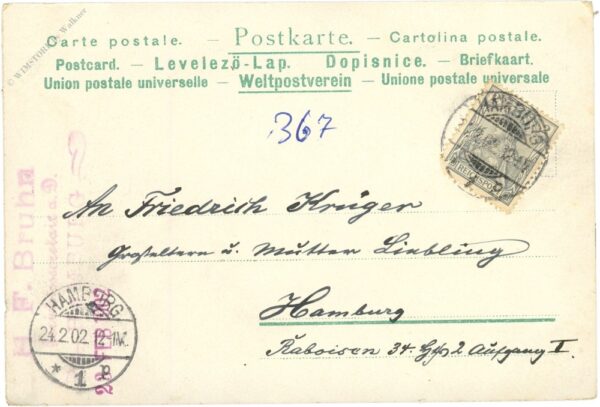 © WIMSTORE - Walkner
Carte postale. — Postkarte. — Cartolina postale.
Postcard. — Levelező-Lap. Dopisnice. — Briefkaart.
Union postale universelle — Weltpostverein — Unione postale universale
367
HAMBURG
1
An Friedrich Krüger
Großeltern u. Mutter Liebling
Hamburg
Raboisen 34. Hs 2 Aufgang I
H. F. Bruhn
HAMBURG
24.2.02. 12-1N.
* 1 g